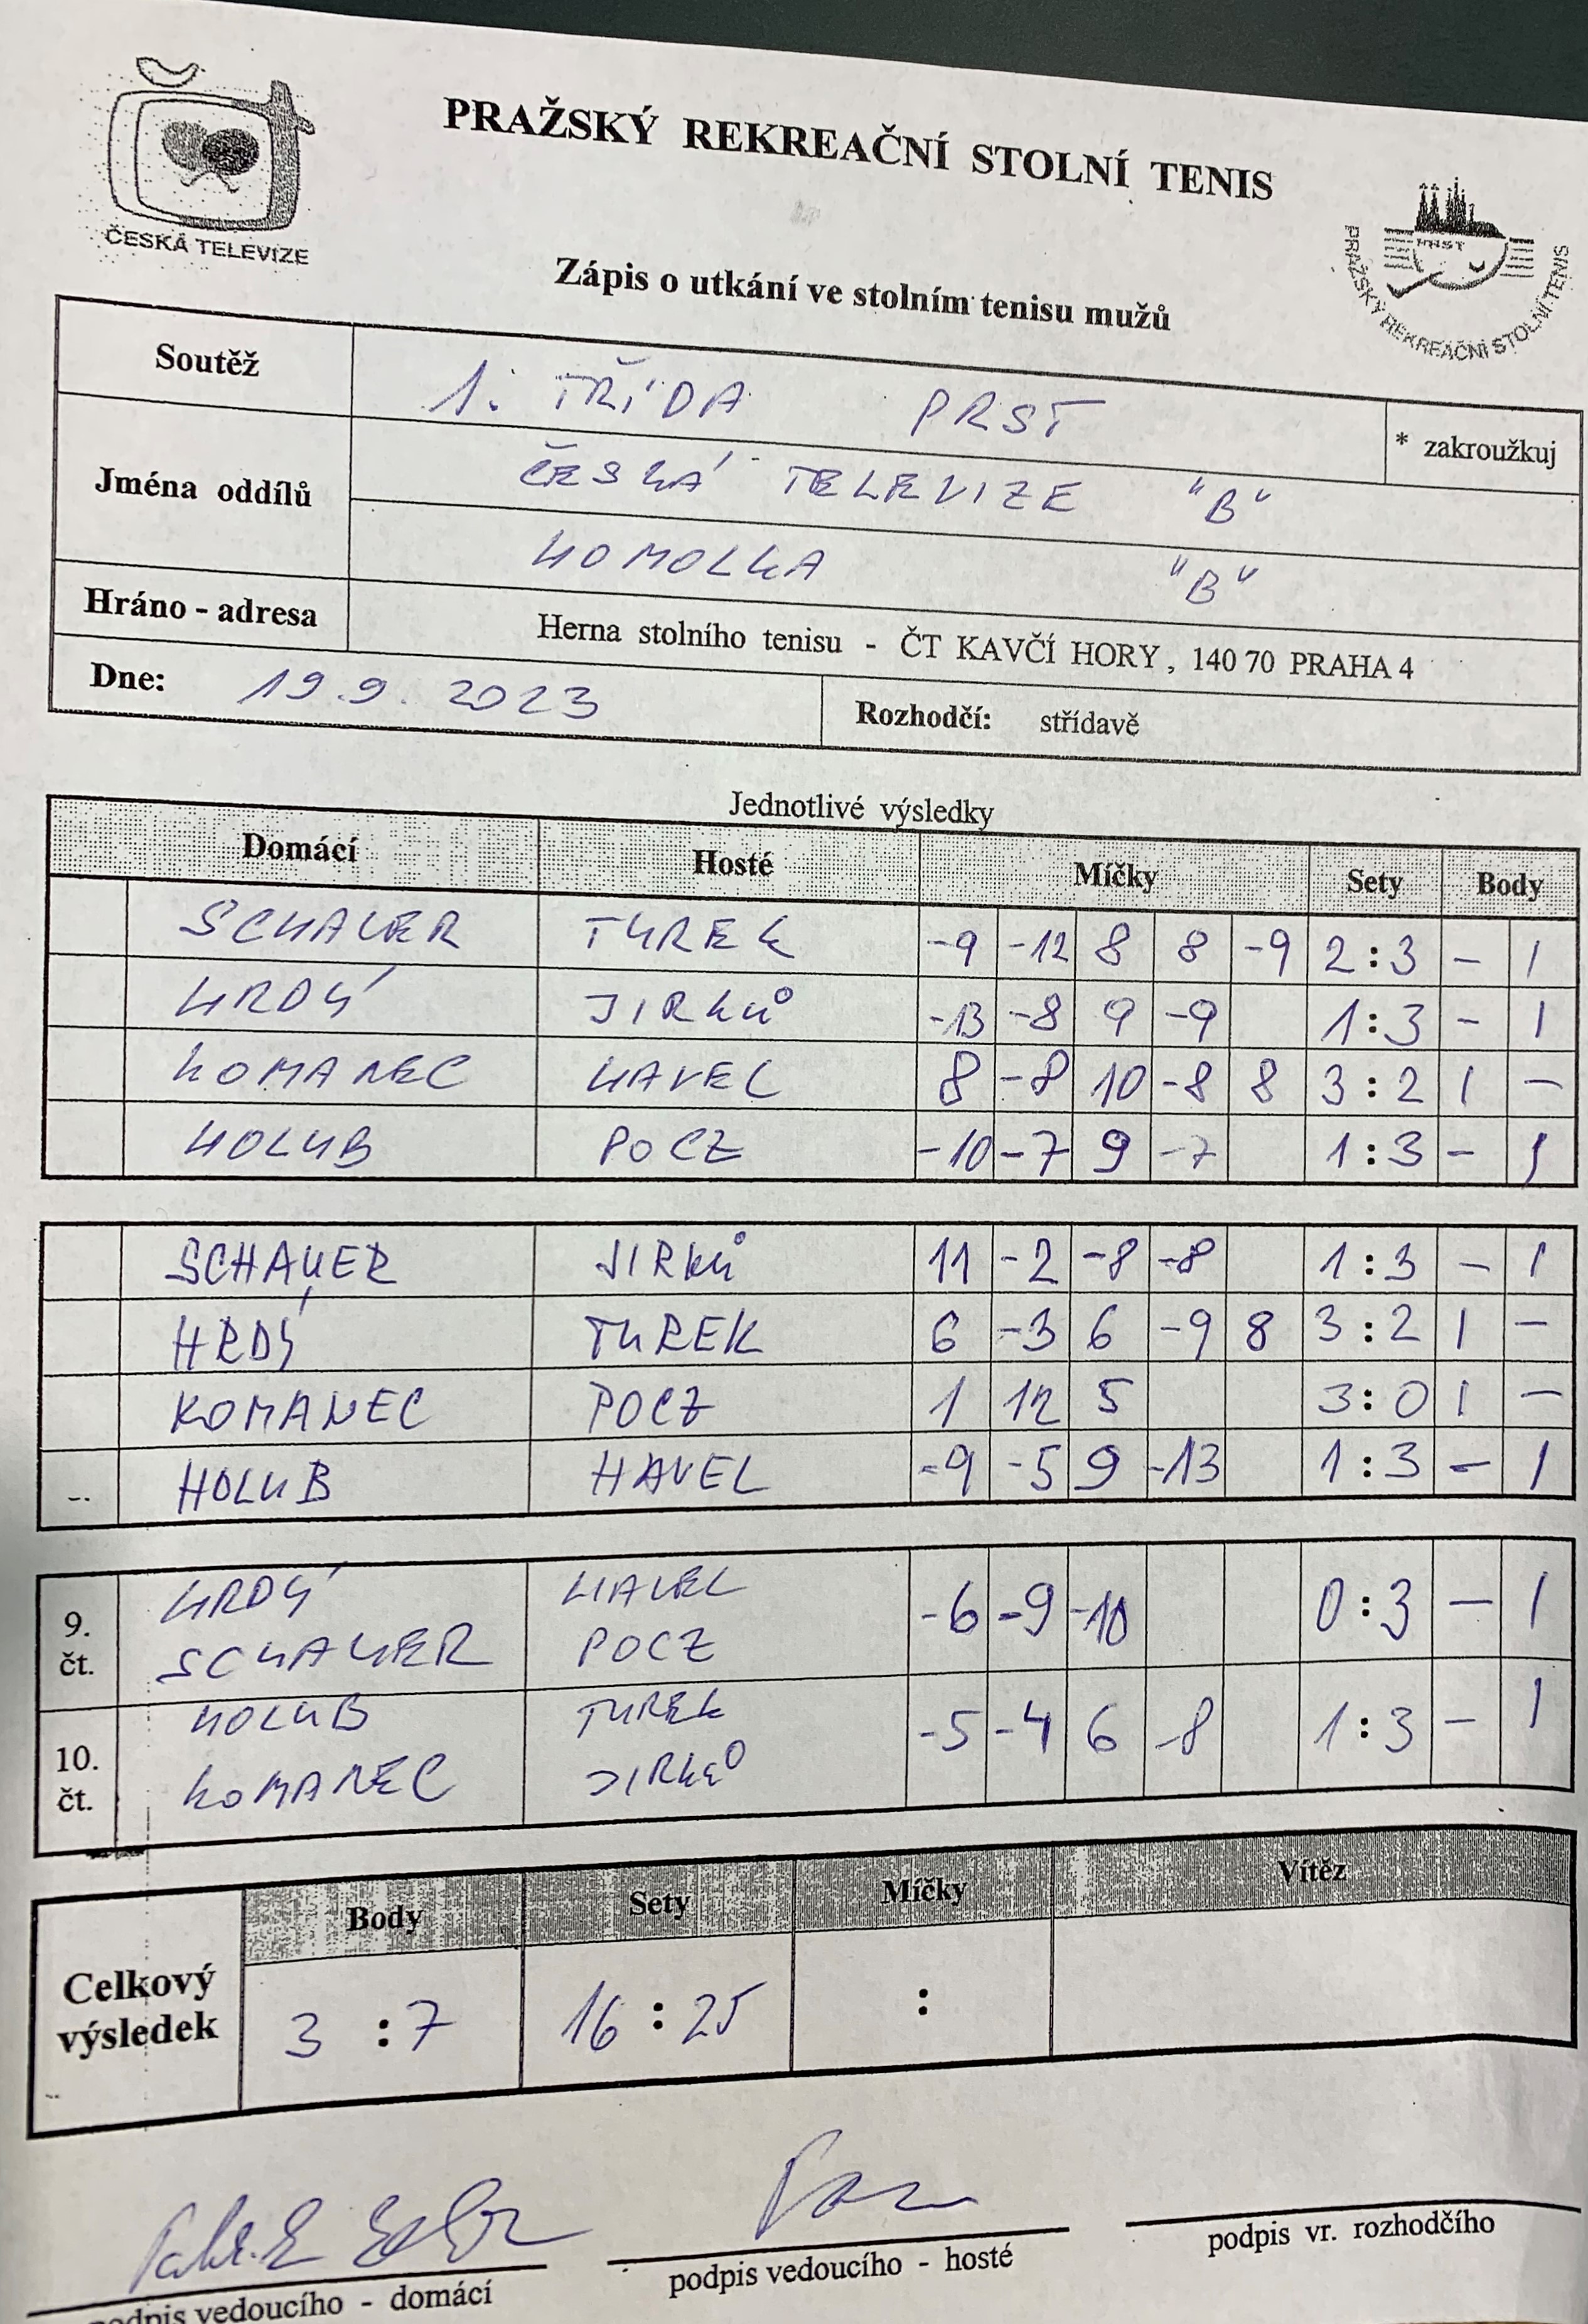 PRAŽSKÝ REKREAČNÍ STOLNÍ TENIS
ČESKÁ TELEVIZE
PRST
PRAŽSKÝ REKREAČNÍ STOLNÍ TENIS
Zápis o utkání ve stolním tenisu mužů
Soutěž 1. TŘÍDA PRST * zakroužkuj
Jména oddílů ČESKÁ TELEVIZE "B"
HOMOLKA "B"
Hráno - adresa Herna stolního tenisu - ČT KAVČÍ HORY, 140 70 PRAHA 4
Dne: 19.9.2023 Rozhodčí: střídavě
Jednotlivé výsledky
Domácí Hosté Míčky Sety Body
SCHAUER TUREK -9 -12 8 8 -9 2:3 - 1
HRDÝ JIRKŮ -13 -8 9 -9 1:3 - 1
KOMANEC HAVEL 8 -8 10 -8 8 3:2 1 -
HOLUB POCZ -10 -7 9 -7 1:3 - 1
SCHAUER JIRKŮ 11 -2 -8 -8 1:3 - 1
HRDÝ TUREK 6 -3 6 -9 8 3:2 1 -
KOMANEC POCZ 1 12 5 3:0 1 -
HOLUB HAVEL -9 -5 9 -13 1:3 - 1
9. čt. HRDÝ HAVEL -6 -9 -10 0:3 - 1
SCHAUER POCZ
10. čt. HOLUB TUREK -5 -4 6 -8 1:3 - 1
KOMANEC JIRKŮ
Body Sety Míčky Vítěz
Celkový výsledek 3:7 16:25 :
podpis vedoucího - domácí podpis vedoucího - hosté podpis vr. rozhodčího